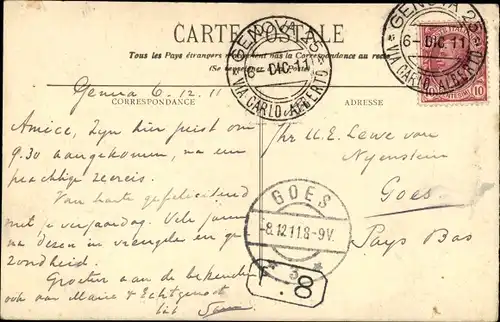 CARTE POSTALE
Tous les Pays étrangers n'acceptent pas la Correspondance au recto
(Se
GENOVA 25
6- DIC. 11
VIA CARLO ALBERTO
GENOVA 25
6- DIC. 11
VIA CARLO ALBERTO
10 10
CORRESPONDANCE
ADRESSE
Genua 6.12.11
Amice, Zyn hier juist om
9.30 aangekomen, na een
prachtige zeereis.
Van harte gefeliciteerd
met je verjaardag. Vele jaren
na dezen in vreugde en ge
zondheid.
Groeten aan de bekenden
ook aan Marie & Echtgenoot
Lewe van
Nyenstein
Goes
Pays Bas
GOES
-8.12.11.8-9V.
* 3 *
F.8